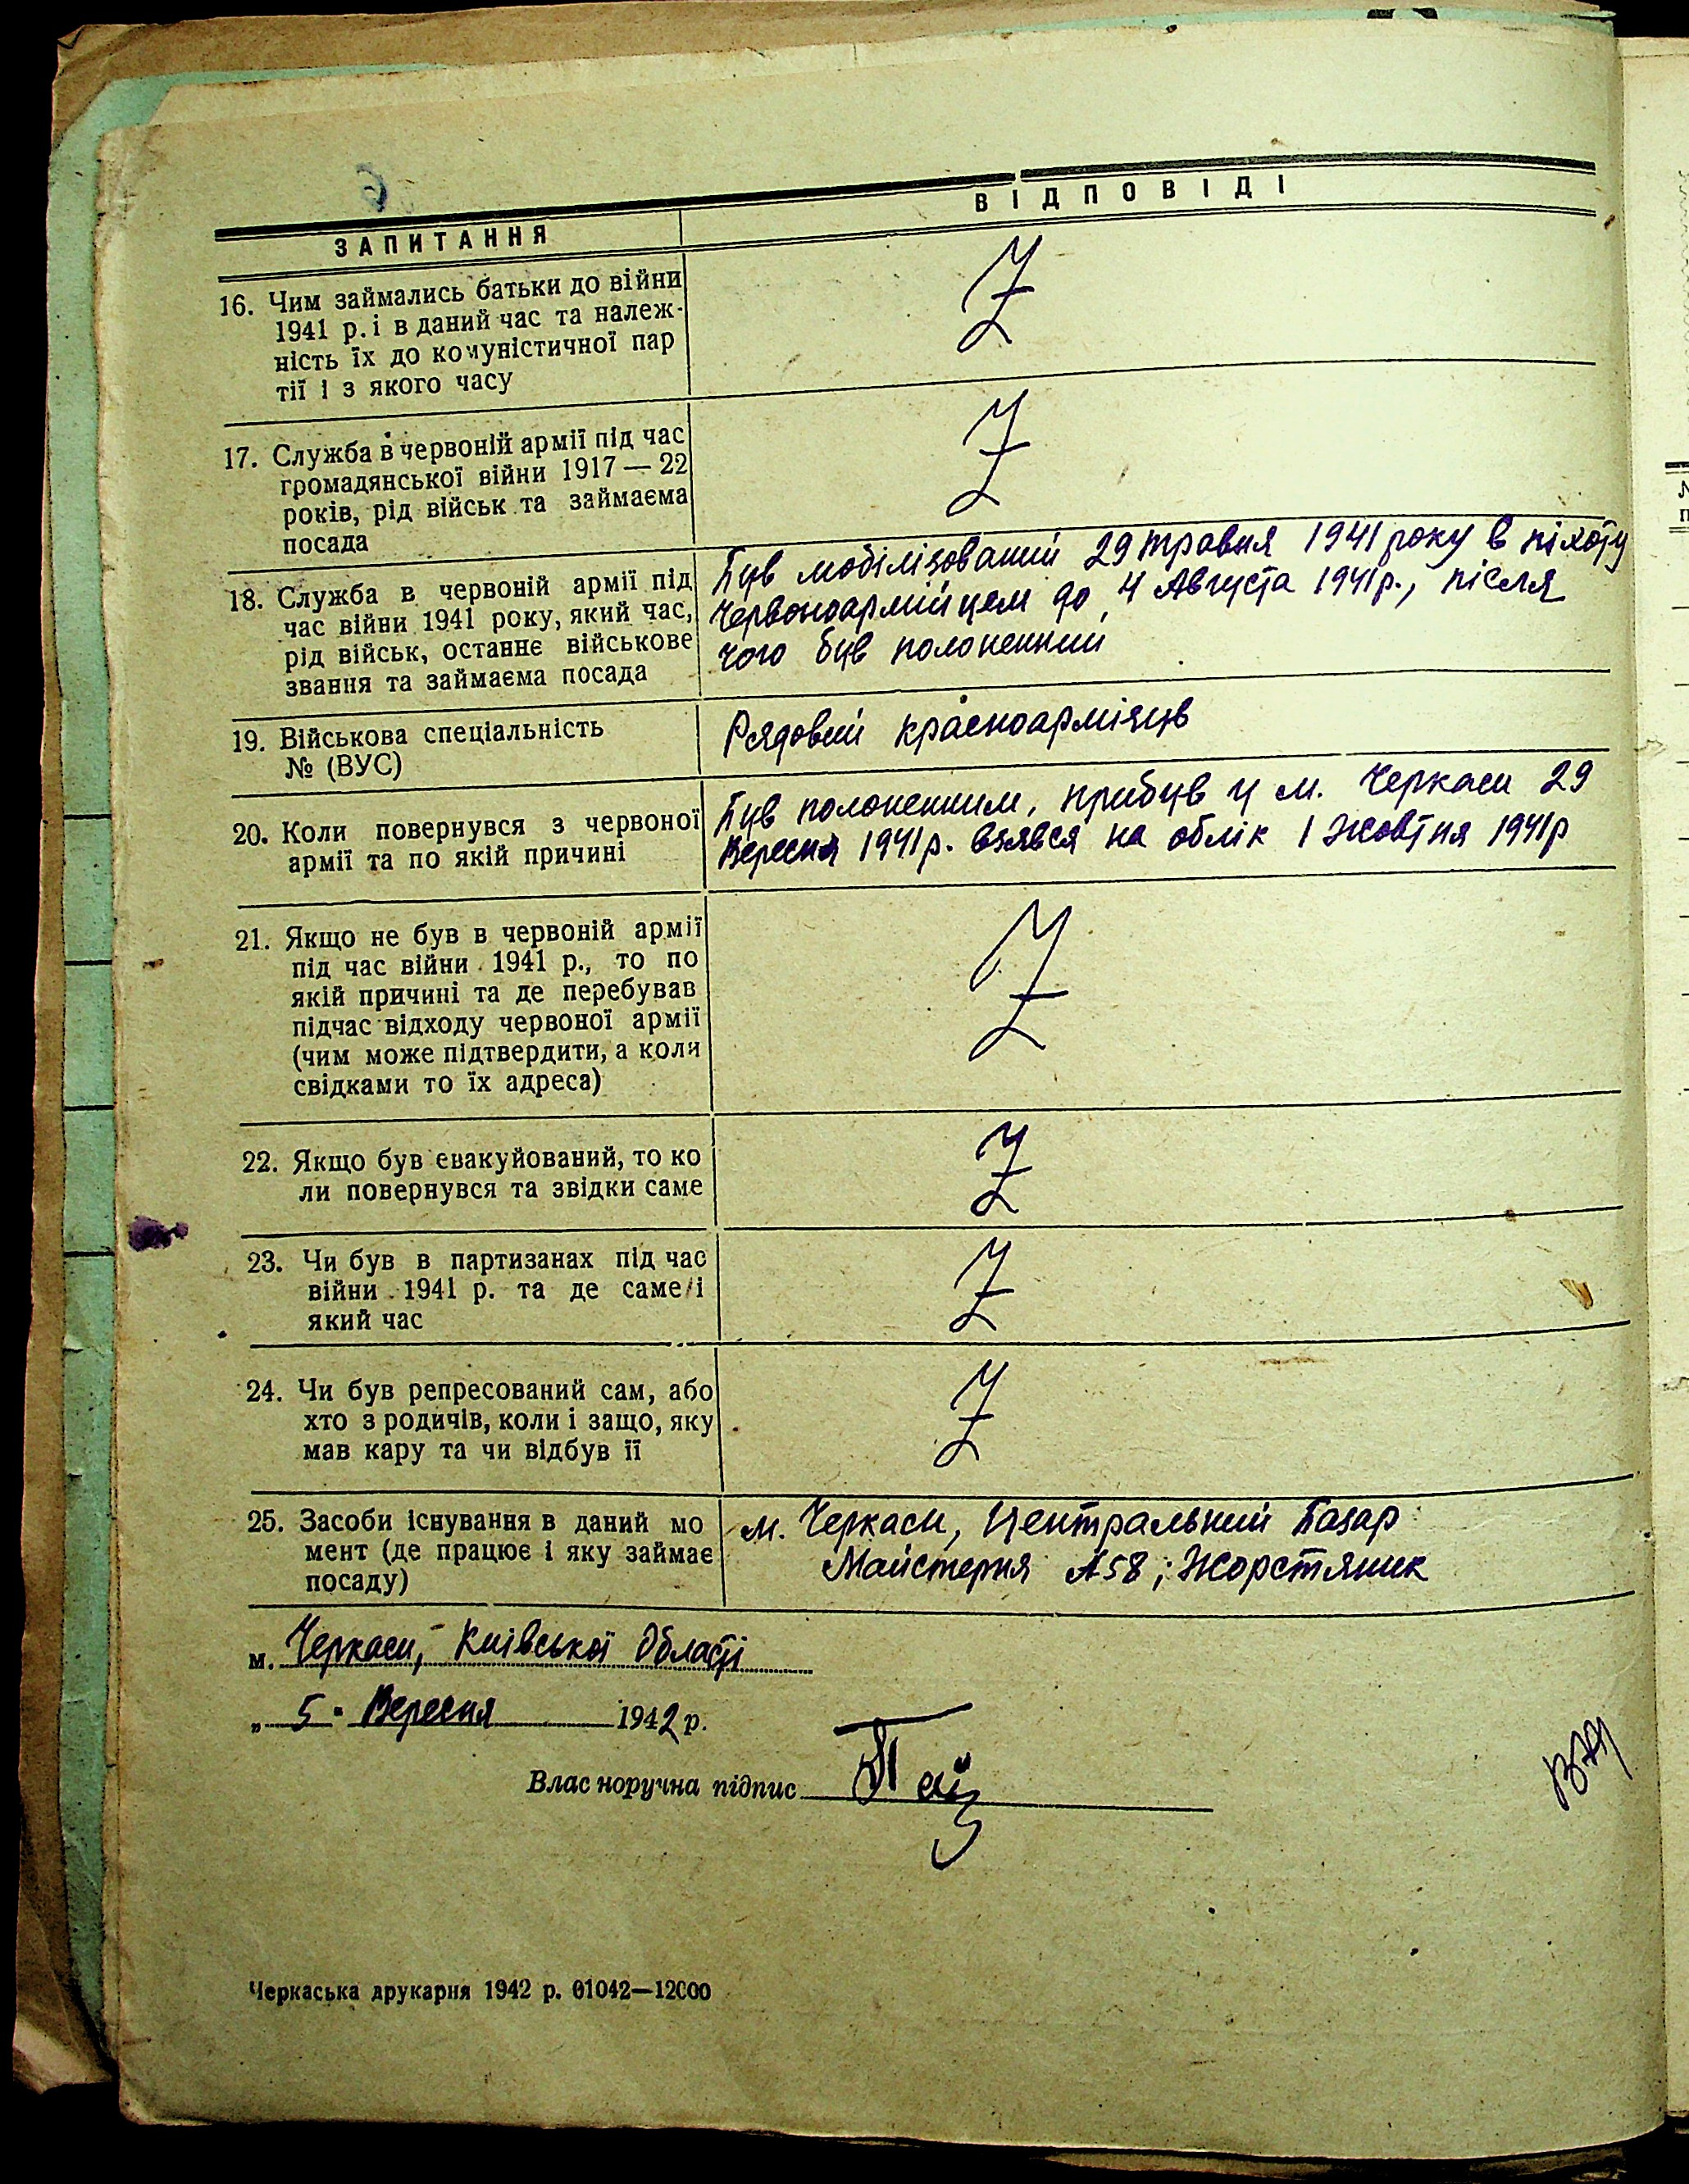 ЗАПИТАННЯ
ВІДПОВІДІ
16. Чим займались батьки до війни
1941 р. і в даний час та належ-
ність їх до комуністичної пар
тії і з якого часу
Z
17. Служба в червоній армії під час
громадянської війни 1917 — 22
років, рід військ та займаєма
посада
Z
18. Служба в червоній армії під
час війни 1941 року, який час,
рід військ, останнє військове
звання та займаєма посада
Був мобілізований 29 травня 1941 року в піхоту
Червоноармийцем до 4 Августа 1941р., після
чого був полоненний
19. Військова спеціальність
№ (ВУС)
Рядовий красноарміяцв
20. Коли повернувся з червоної
армії та по якій причині
Був полоненним, прибув у м. Черкаси 29
Вересня 1941р. взявся на облік 1 Жовтня 1941р
21. Якщо не був в червоній армії
під час війни 1941 р., то по
якій причині та де перебував
підчас відходу червоної армії
(чим може підтвердити, а коли
свідками то їх адреса)
Z
22. Якщо був евакуйований, то ко
ли повернувся та звідки саме
Z
23. Чи був в партизанах під час
війни 1941 р. та де саме і
який час
Z
24. Чи був репресований сам, або
хто з родичів, коли і защо, яку
мав кару та чи відбув її
Z
25. Засоби існування в даний мо
мент (де працює і яку займає
посаду)
м. Черкаси, Центральний Базар
Майстерня №58; Жорстяник
м. Черкаси, Київської Області
„ 5 " Вересня 1942 р.
Власноручна підпис
Черкаська друкарня 1942 р. 01042—12000